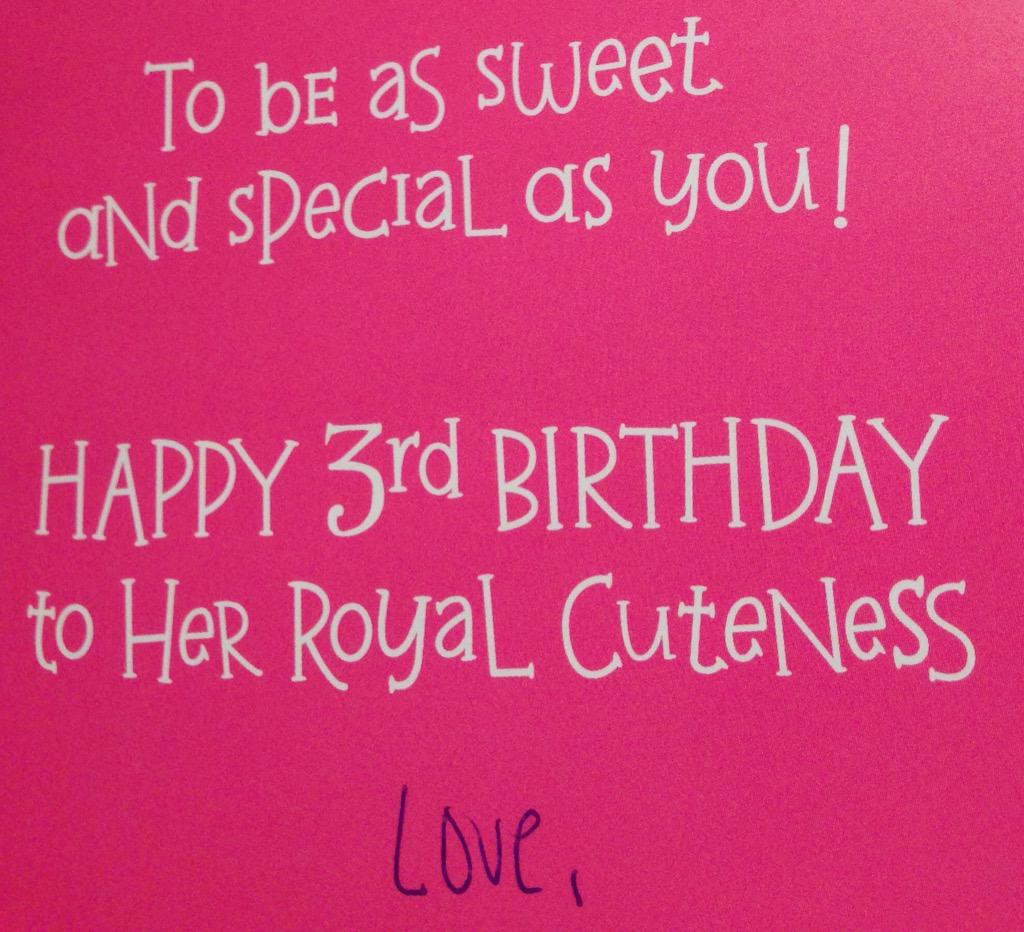 To bE aS sweet
aNd speCIaL as you!
HAPPY 3rd BIRTHDAY
to HeR RoyaL CuteNesS
Love,